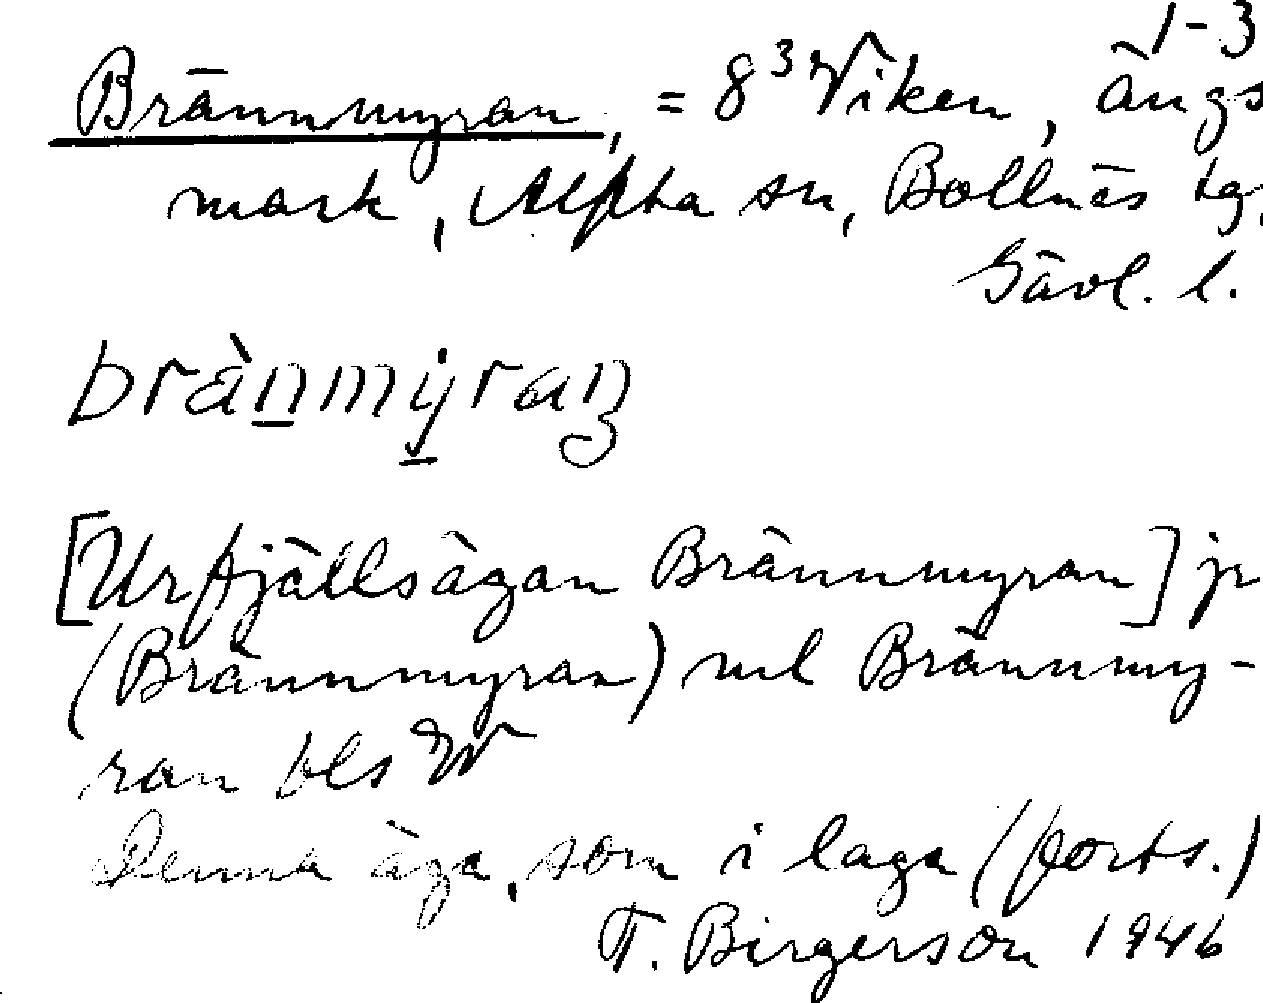 1-3
Brännmyran, = 8³ Viken, ängs
mark, Alfta sn, Bollnäs tg,
Gävl. l.
brànmýran
[Urfjällsägan Brännmyran] jr
(Brännmyran) uel Brännmy-
ran bls
Denna äga, som i laga (forts.)
T. Birgerson 1946